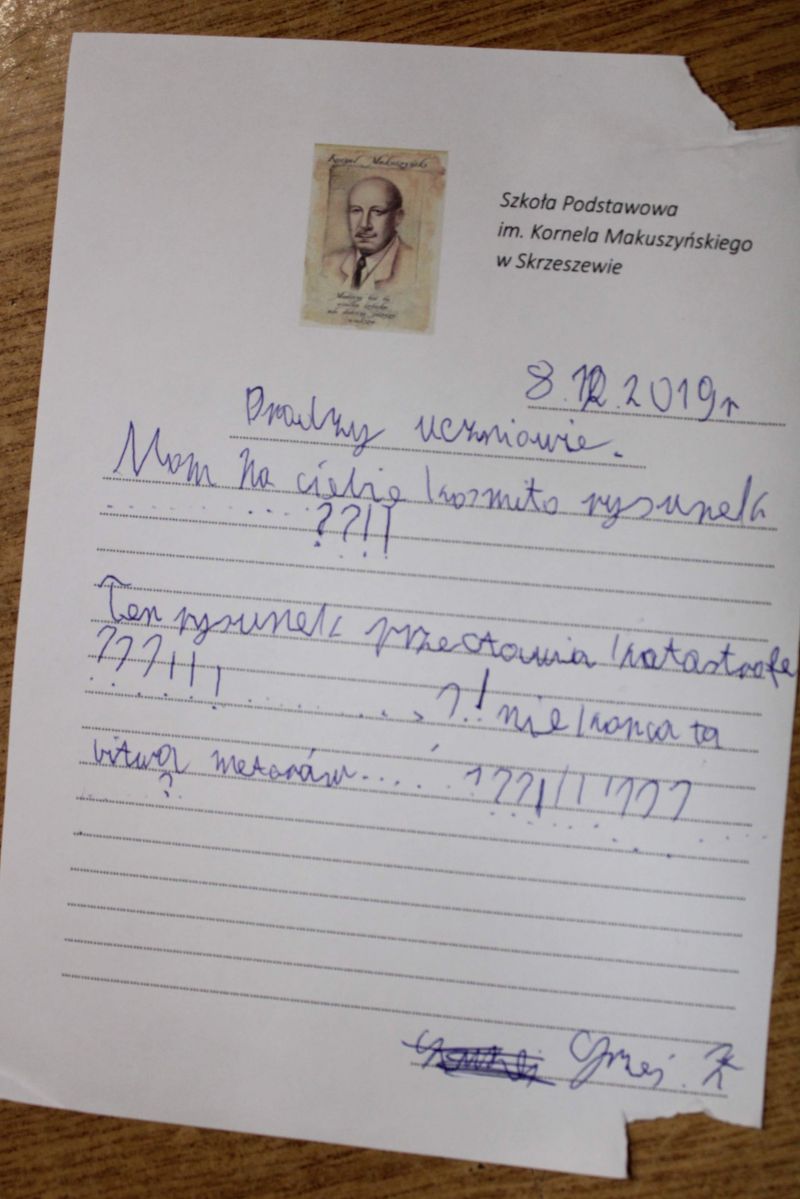 Kornel Makuszyński
Szkoła Podstawowa
im. Kornela Makuszyńskiego
w Skrzeszewie
8.12.2019r
Drodzy uczniowie.
Mam na ciebie kosmito rysunek
??!!
Ten rysunek przedtawia katastrofe
???!!!
?! nie konca ta
bitwa metorów....???!!!!???
?
Grześ. K